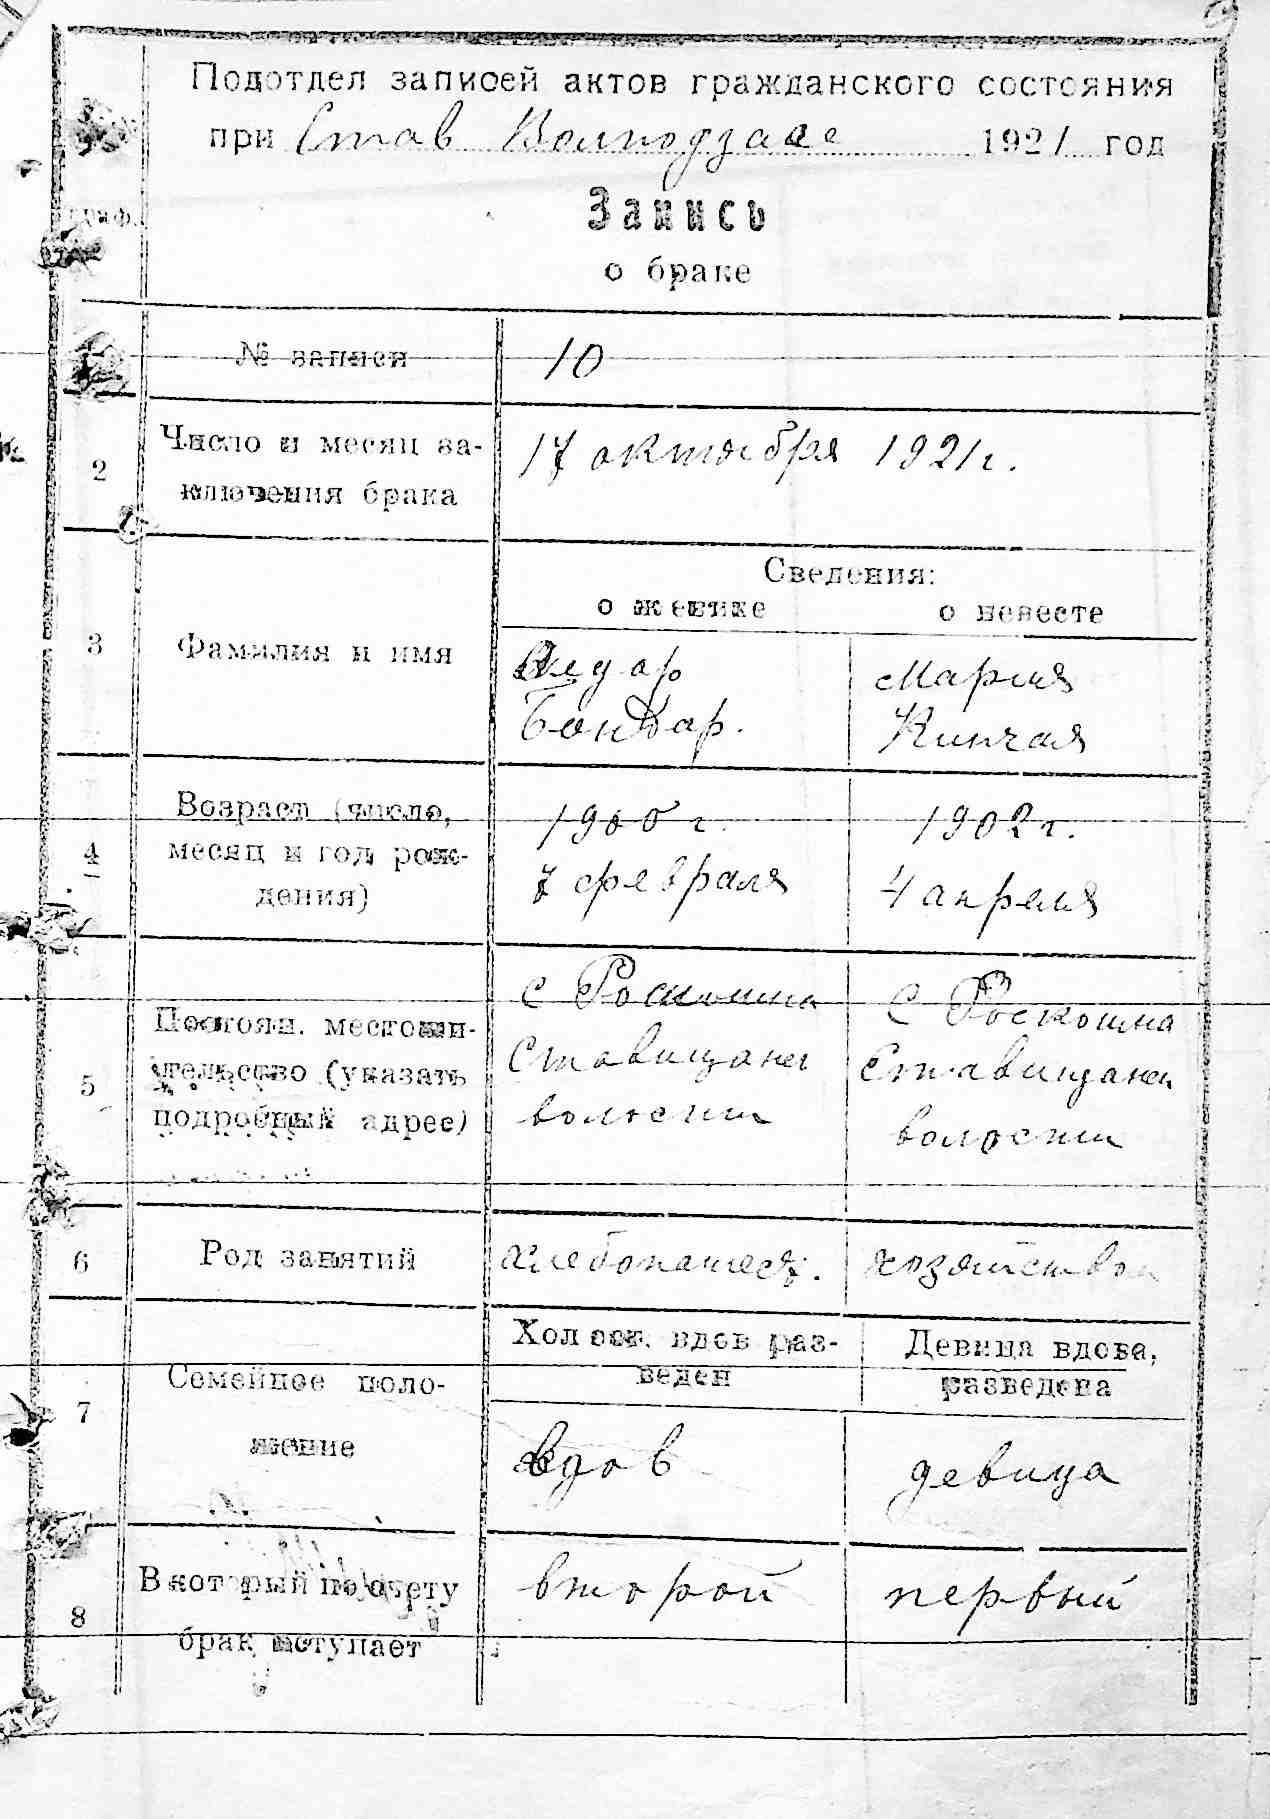 Подотдел записей актов гражданского состояния
при Став Волподзаге 1921 год
граф.
Запись
о браке
№ записи 10
2 Число и месяц за-
ключения брака
17 октября 1921 г.
Сведения:
о женихе о невесте
3 Фамилия и имя
Федор
Бондар.
Мария
Кинчая
4 Возраст (число,
месяц и год рож-
дения)
1900 г.
7 февраля
1902 г.
4 апреля
5 Постоян. местожи-
тельство (указать
подробный адрес)
с Роскошна
Ставищанск
волости
с Роскошна
Ставищанск
волости
6 Род занятий
хлебопашец.
хозяйством
7 Семейное поло-
жение
Холост. вдов раз-
веден
Девица вдова,
разведена
вдов
девица
8 В который по счету
брак вступает
второй
первый